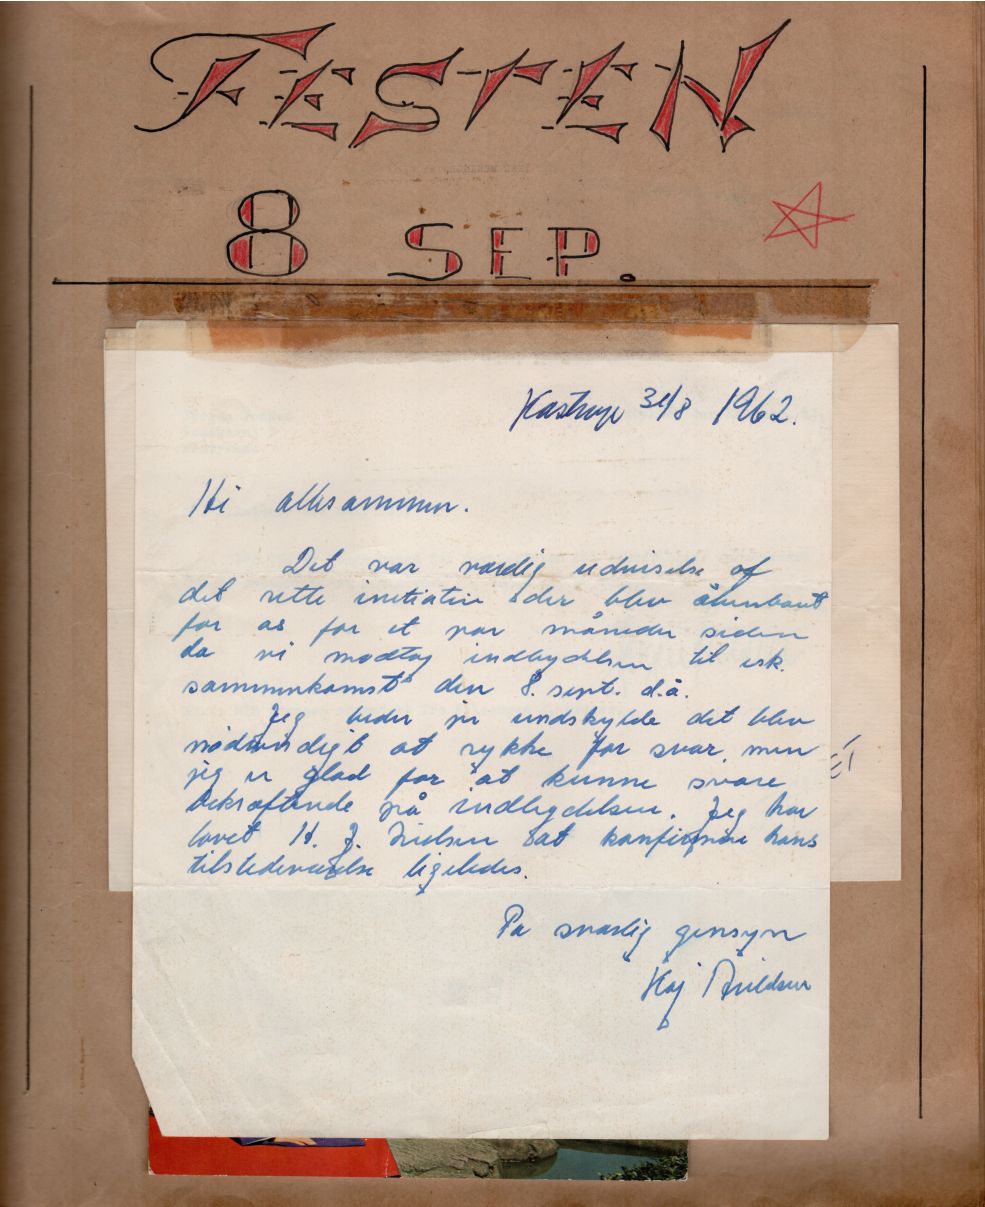 FESTEN
8 SEP.
Kastrup 31/8 1962.
Hi allesammen.
Det var værdig udviselse af
det rette initiativ der blev åbenbaret
for os for et par måneder siden
da vi modtog indbydelsen til esk.
sammenkomst den 8. sept. d.å.
Jeg beder jer undskylde det blev
nødvendigt at rykke for svar, men
jeg er glad for at kunne svare
bekræftende på indbydelsen. Jeg har
lovet H. J. Nielsen at konfirmere hans
tilstedeværelse ligeledes.
På snarlig gensyn
Kaj